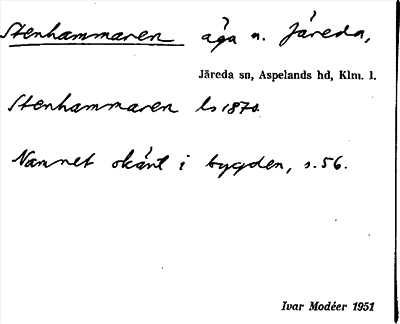 Stenhammaren äga n. Järeda,
Järeda sn, Aspelands hd, Klm. l.
Stenhammaren ls 1870.
Namnet okänt i bygden, s. 56.
Ivar Modéer 1951